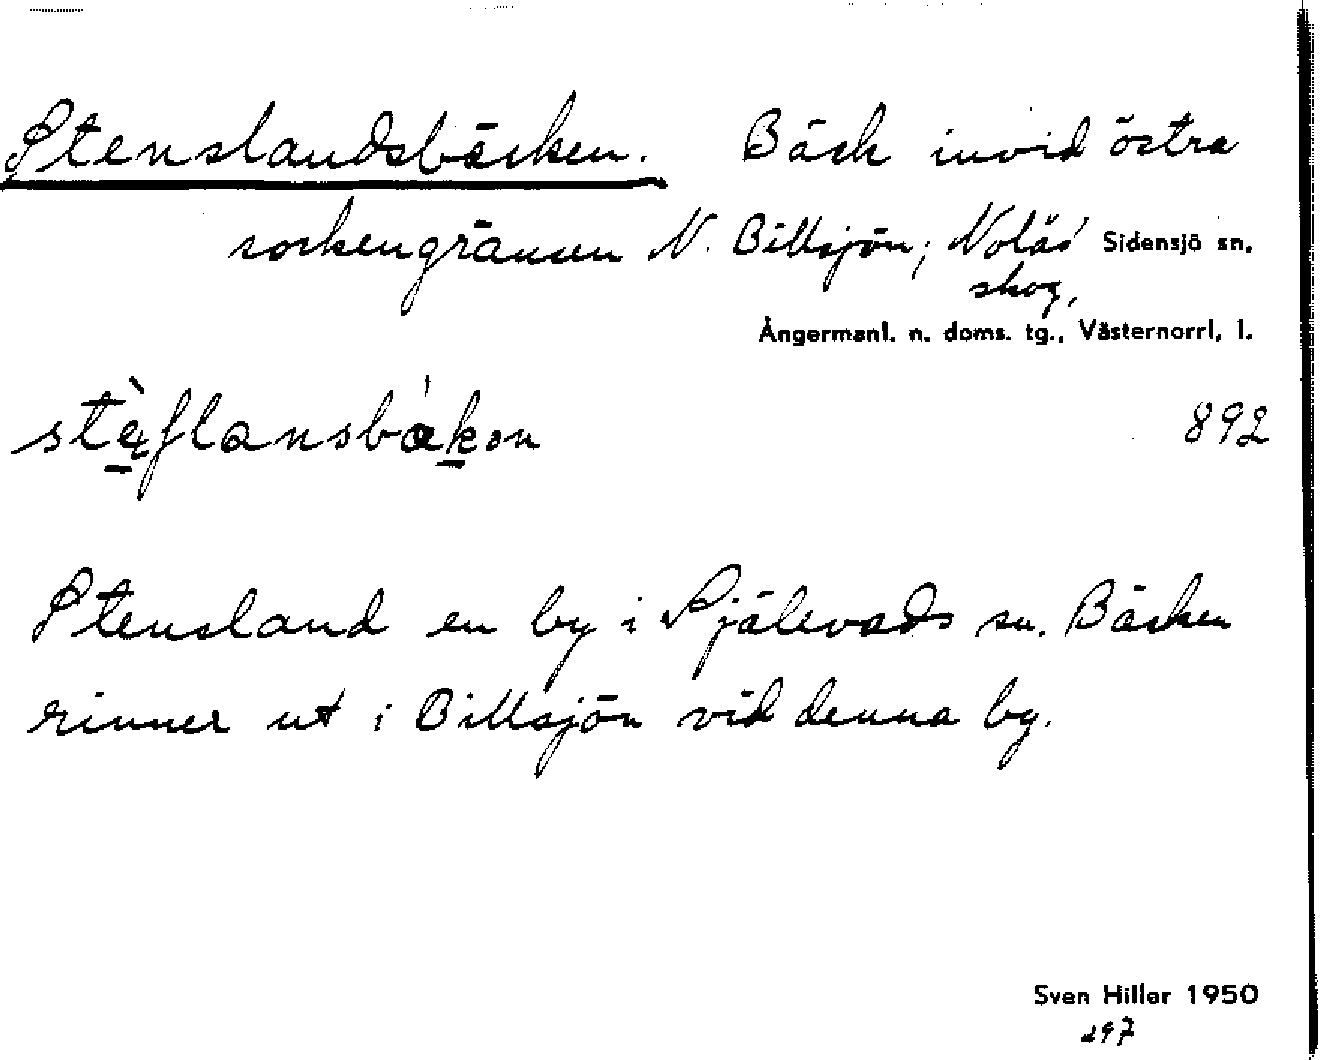 Stenslandsbäcken. Bäck invid östra
sockengränsen N. Billsjön; Nolås Sidensjö sn.
skog,
Ångermanl. n. doms. tg., Västernorrl. l.
892
Stensland en by i Själevads sn. Bäcken
rinner ut i Billsjön vid denna by.
Sven Hiller 1950
297